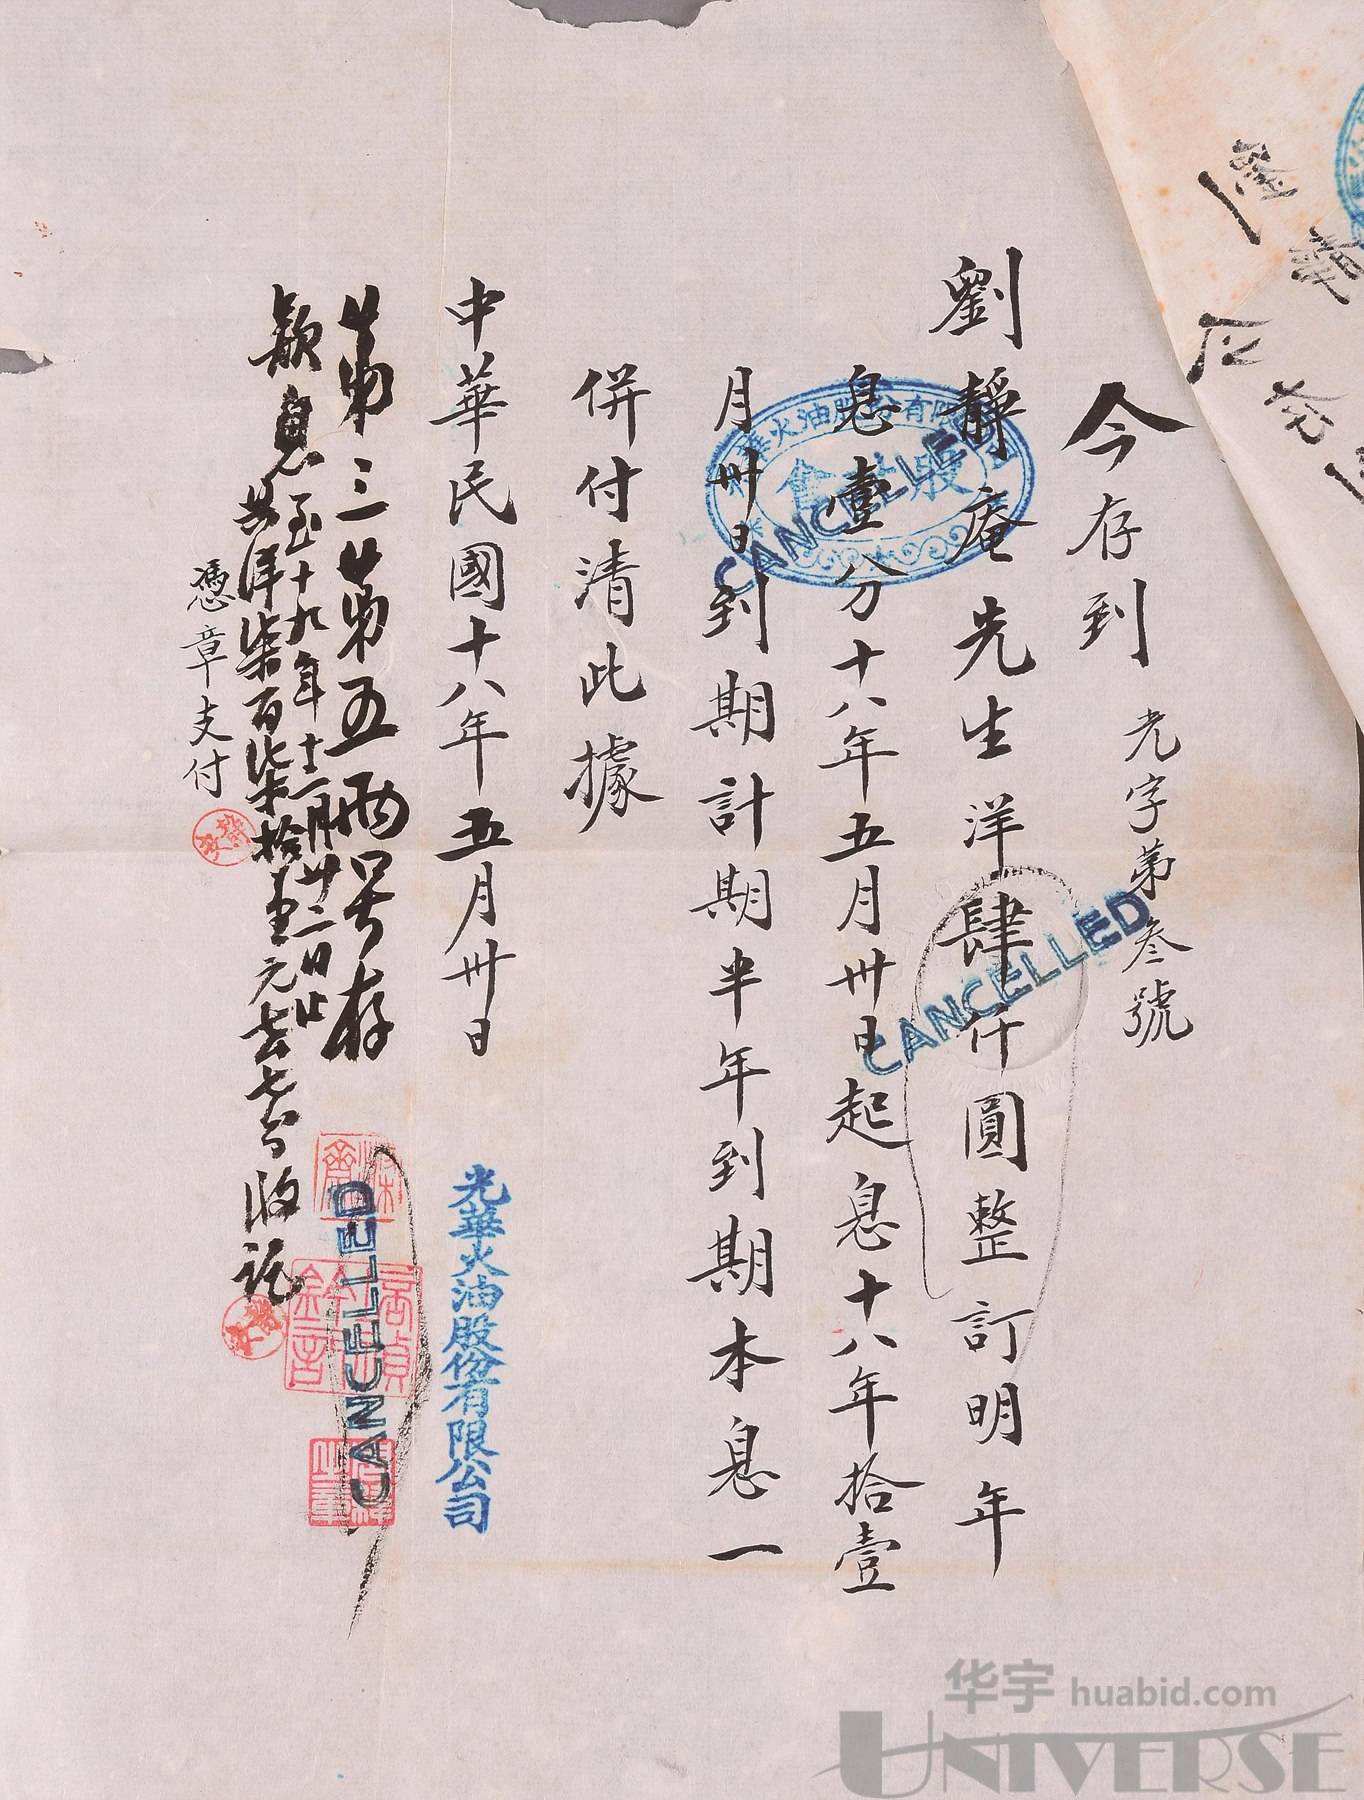 今存到
光字第叁號
劉靜庵先生洋肆仟圓整訂明年
息壹分十八年五月卅日起息十八年拾壹
月卅日到期計期半年到期本息一
併付清此據
中華民國十八年五月卅日
光華火油股份有限公司
廿第三廿第五兩号存
款息至十九年十二月廿二日止
共洋柒百柒拾壹元去七分收訖
憑章支付
光華火油股份有限公司
董事會
CANCELLED
CANCELLED
CANCELLED
华宇 huabid.com
UNIVERSE